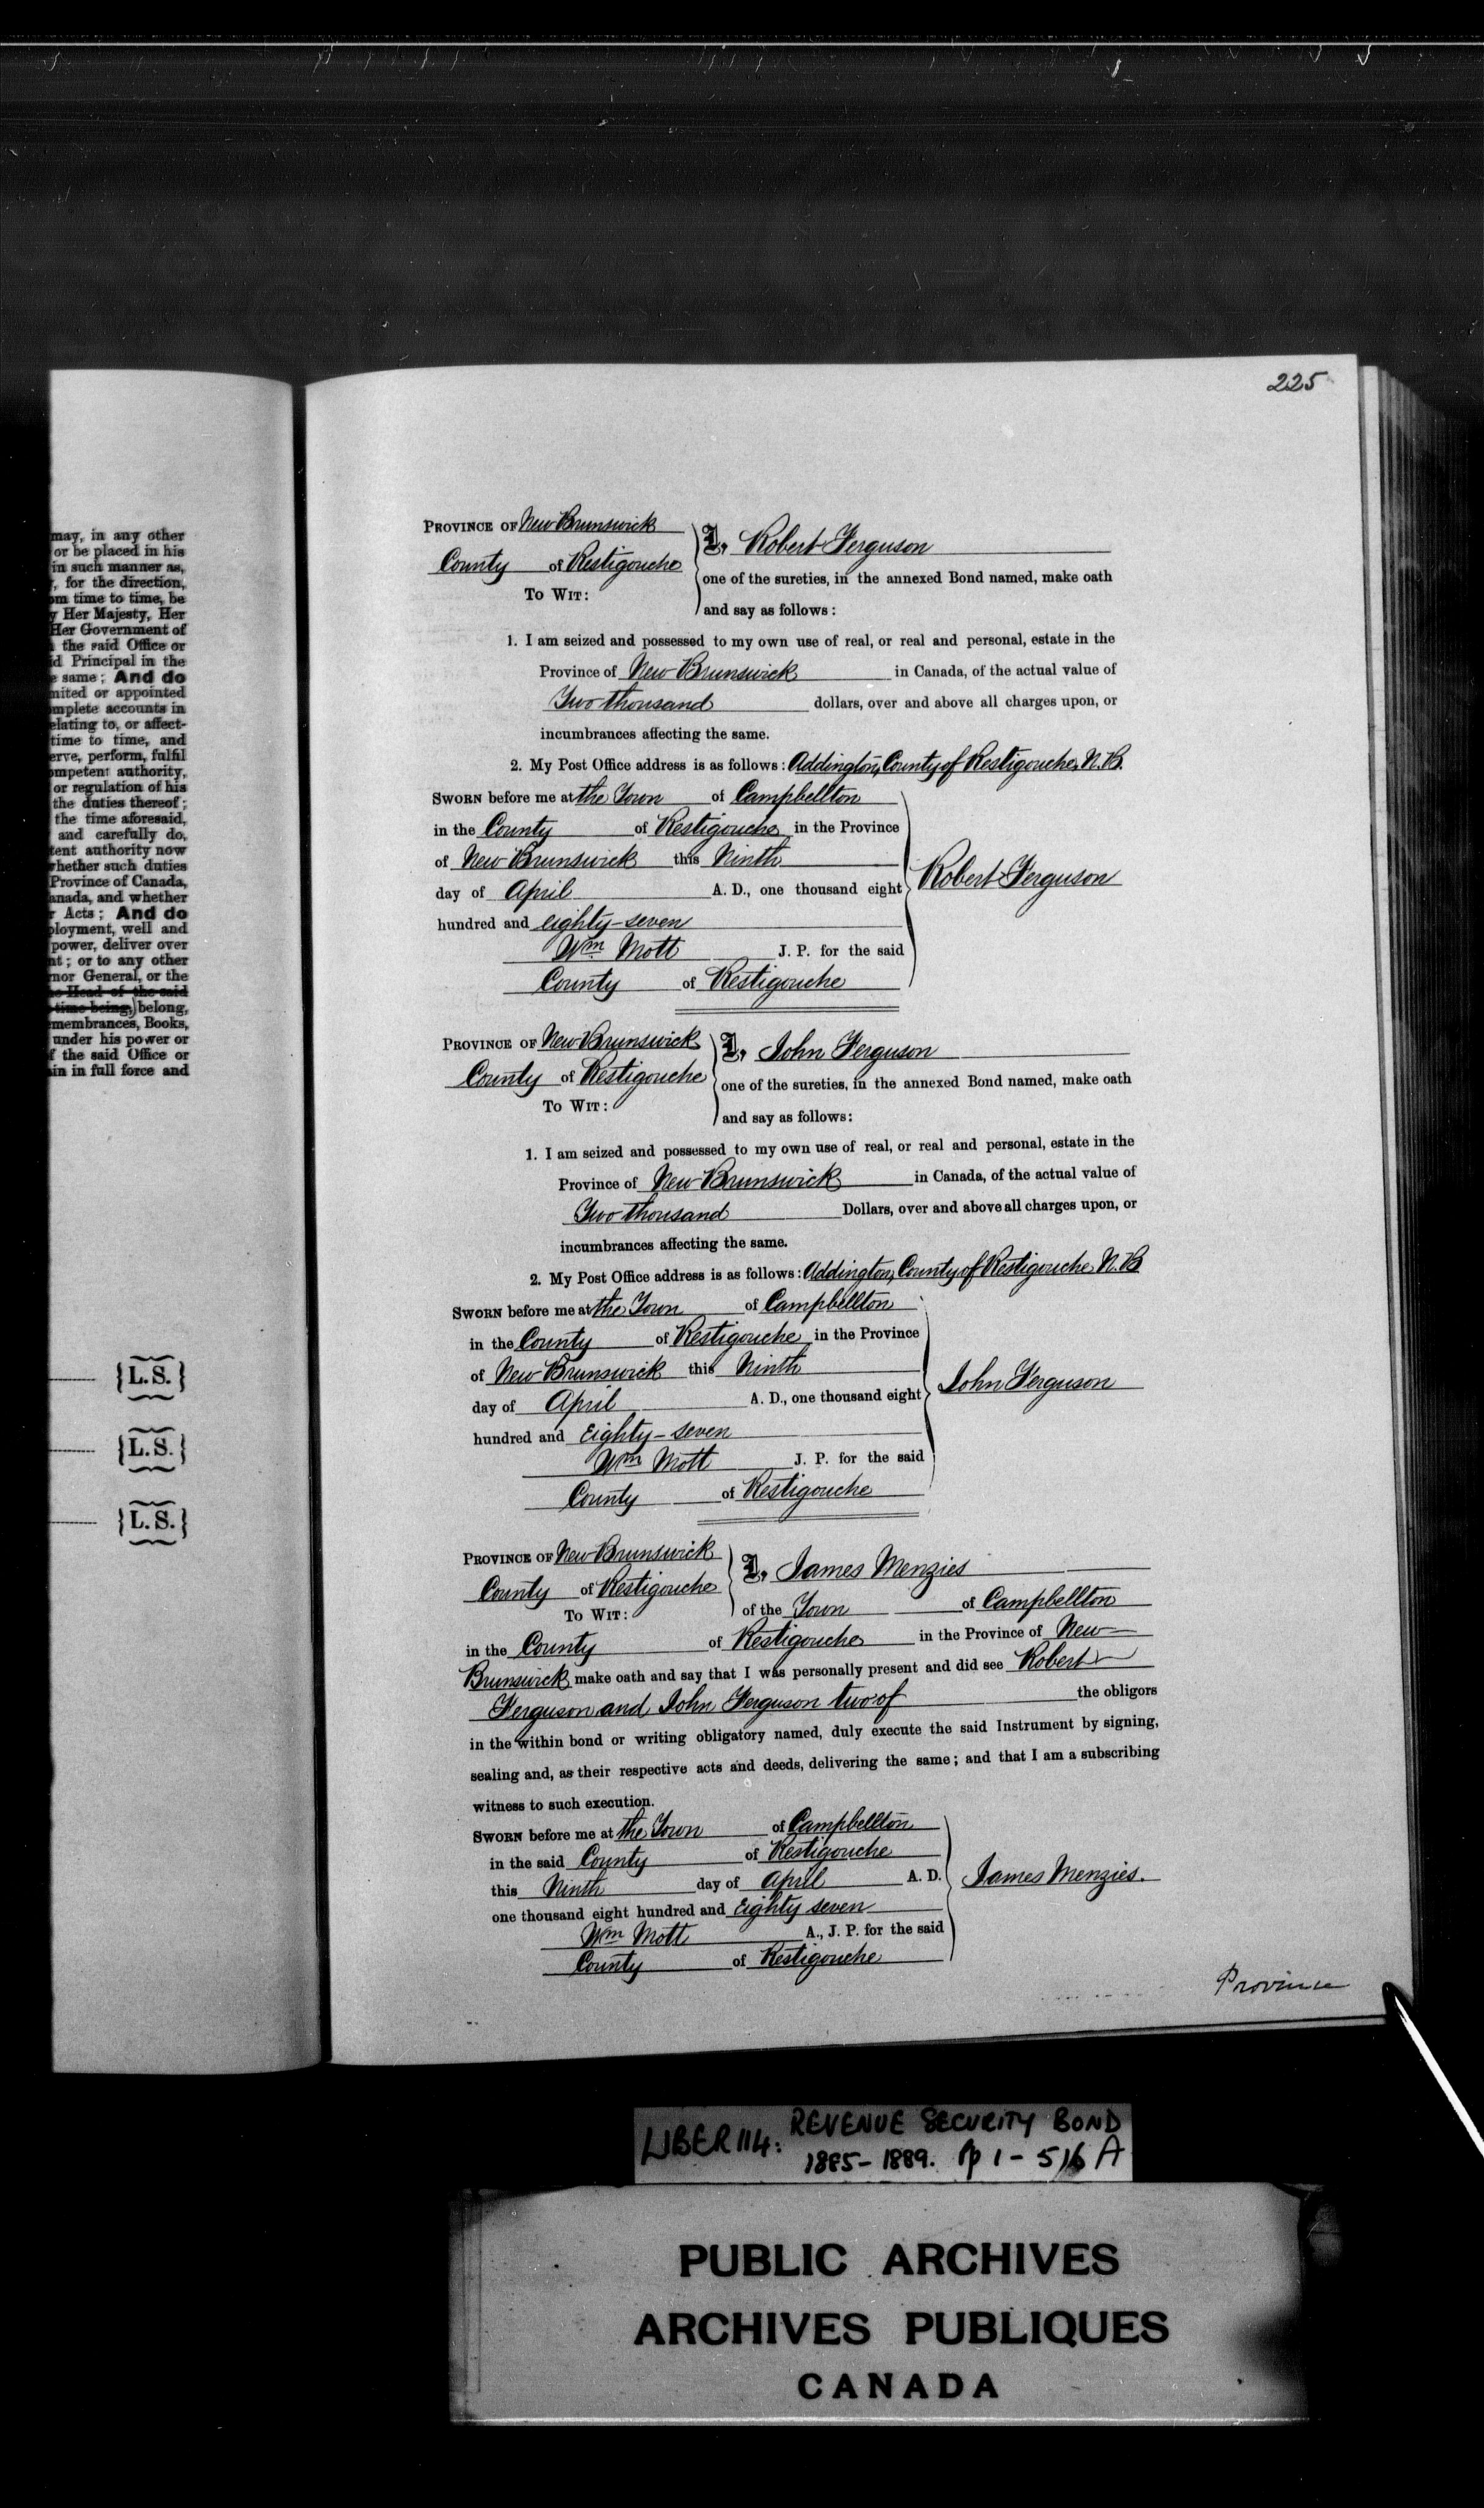 may, in any other
or be placed in his
in such manner as,
, for the direction,
om time to time, be
y Her Majesty, Her
Her Government of
the said Office or
id Principal in the
e same; And do
nited or appointed
mplete accounts in
elating to, or affect-
time to time, and
erve, perform, fulfil
ompetent authority,
or regulation of his
the duties thereof;
the time aforesaid,
and carefully do,
tent authority now
whether such duties
Province of Canada,
anada, and whether
r Acts; And do
ployment, well and
power, deliver over
nt; or to any other
nor General, or the
e Head of the said
time being,) belong,
membrances, Books,
under his power or
f the said Office or
in in full force and
{L.S.}
{L.S.}
{L.S.}
225
PROVINCE OF New Brunswick
County of Restigouche
TO WIT:
I, Robert Ferguson
one of the sureties, in the annexed Bond named, make oath
and say as follows:
1. I am seized and possessed to my own use of real, or real and personal, estate in the
Province of New Brunswick in Canada, of the actual value of
Two thousand dollars, over and above all charges upon, or
incumbrances affecting the same.
2. My Post Office address is as follows: Addington, County of Restigouche, N.B.
SWORN before me at the Town of Campbellton
in the County of Restigouche in the Province
of New Brunswick this Ninth
day of April A. D., one thousand eight
hundred and eighty-seven
Wm Mott J. P. for the said
County of Restigouche
Robert Ferguson
PROVINCE OF New Brunswick
County of Restigouche
TO WIT:
I, John Ferguson
one of the sureties, in the annexed Bond named, make oath
and say as follows:
1. I am seized and possessed to my own use of real, or real and personal, estate in the
Province of New Brunswick in Canada, of the actual value of
Two thousand Dollars, over and above all charges upon, or
incumbrances affecting the same.
2. My Post Office address is as follows: Addington, County of Restigouche, N.B
SWORN before me at the Town of Campbellton
in the County of Restigouche in the Province
of New Brunswick this Ninth
day of April A. D., one thousand eight
hundred and Eighty-seven
Wm Mott J. P. for the said
County of Restigouche
John Ferguson
PROVINCE OF New Brunswick
County of Restigouche
TO WIT:
I, James Menzies
of the Town of Campbellton
in the County of Restigouche in the Province of New
Brunswick make oath and say that I was personally present and did see Robert
Ferguson and John Ferguson two of the obligors
in the within bond or writing obligatory named, duly execute the said Instrument by signing,
sealing and, as their respective acts and deeds, delivering the same; and that I am a subscribing
witness to such execution.
SWORN before me at the Town of Campbellton
in the said County of Restigouche
this Ninth day of April A. D.
one thousand eight hundred and Eighty seven
Wm Mott A., J. P. for the said
County of Restigouche
James Menzies.
Province
LIBER 114: REVENUE SECURITY BOND
1885-1889. Pp 1-516 A
PUBLIC ARCHIVES
ARCHIVES PUBLIQUES
CANADA